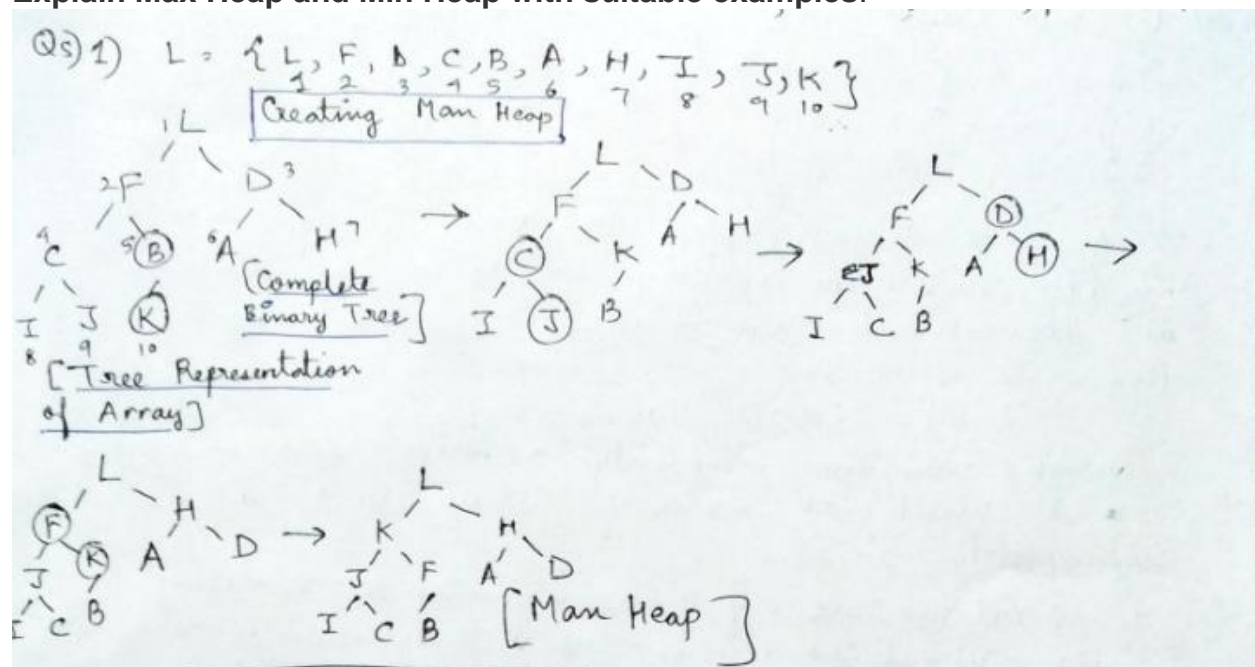 Explain Max Heap and Min Heap with suitable examples.
Qs) 1) L = { L, F, D, C, B, A, H, I, J, K }
1 2 3 4 5 6 7 8 9 10
Creating Man Heap
1 L
2 F D 3
4 C 5 B 6 A H 7
I J K
8 9 10
[Complete
Binary Tree]
[Tree Representation
of Array]
→
L
F D
C K A H
I J B
→
L
F D
J K A H
I C B
→
L
F H
J K A D
I C B
→
L
K H
J F A D
I C B
[Man Heap]